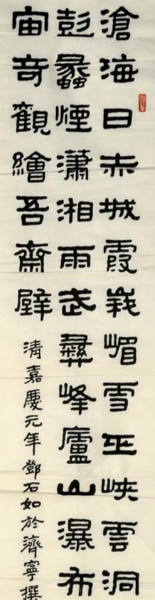 滄海日赤城霞峩嵋雪巫峽雲洞
彭蠡煙瀟湘雨武彝峰廬山瀑布
宙奇觀繪吾齋壁
清嘉慶元年鄧石如於濟寧撰